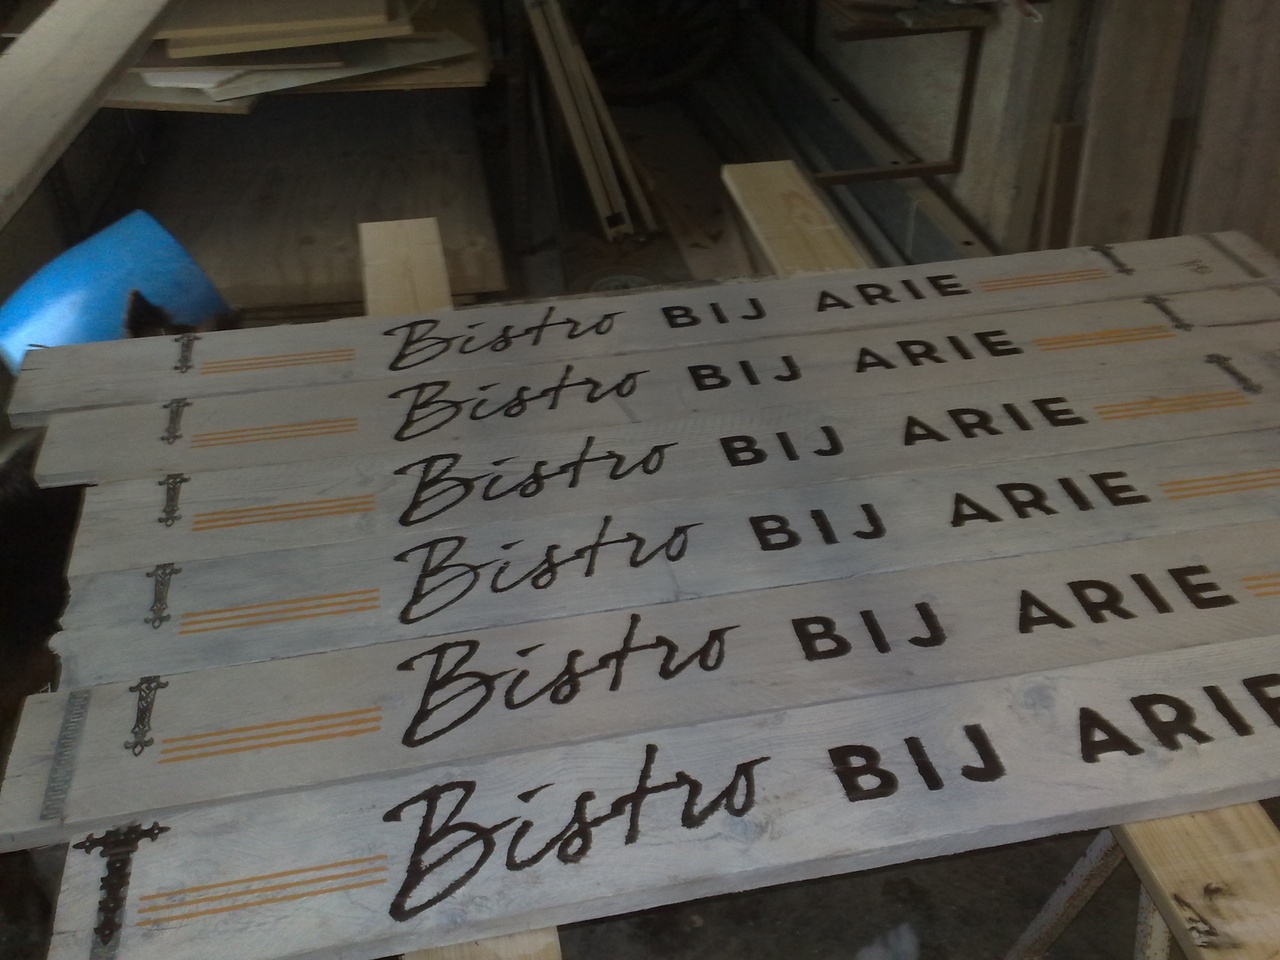 Bistro BIJ ARIE
Bistro BIJ ARIE
Bistro BIJ ARIE
Bistro BIJ ARIE
Bistro BIJ ARIE
Bistro BIJ ARIE